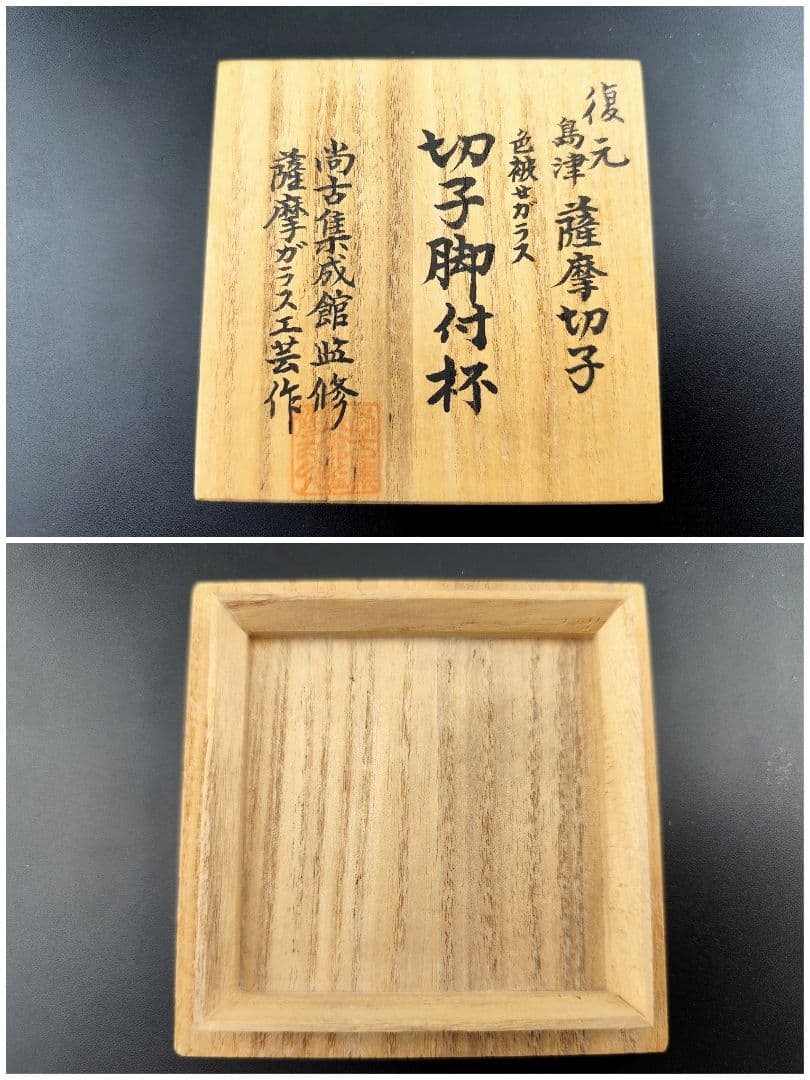 復元
島津薩摩切子
色被せガラス
切子脚付杯
尚古集成館監修
薩摩ガラス工芸作